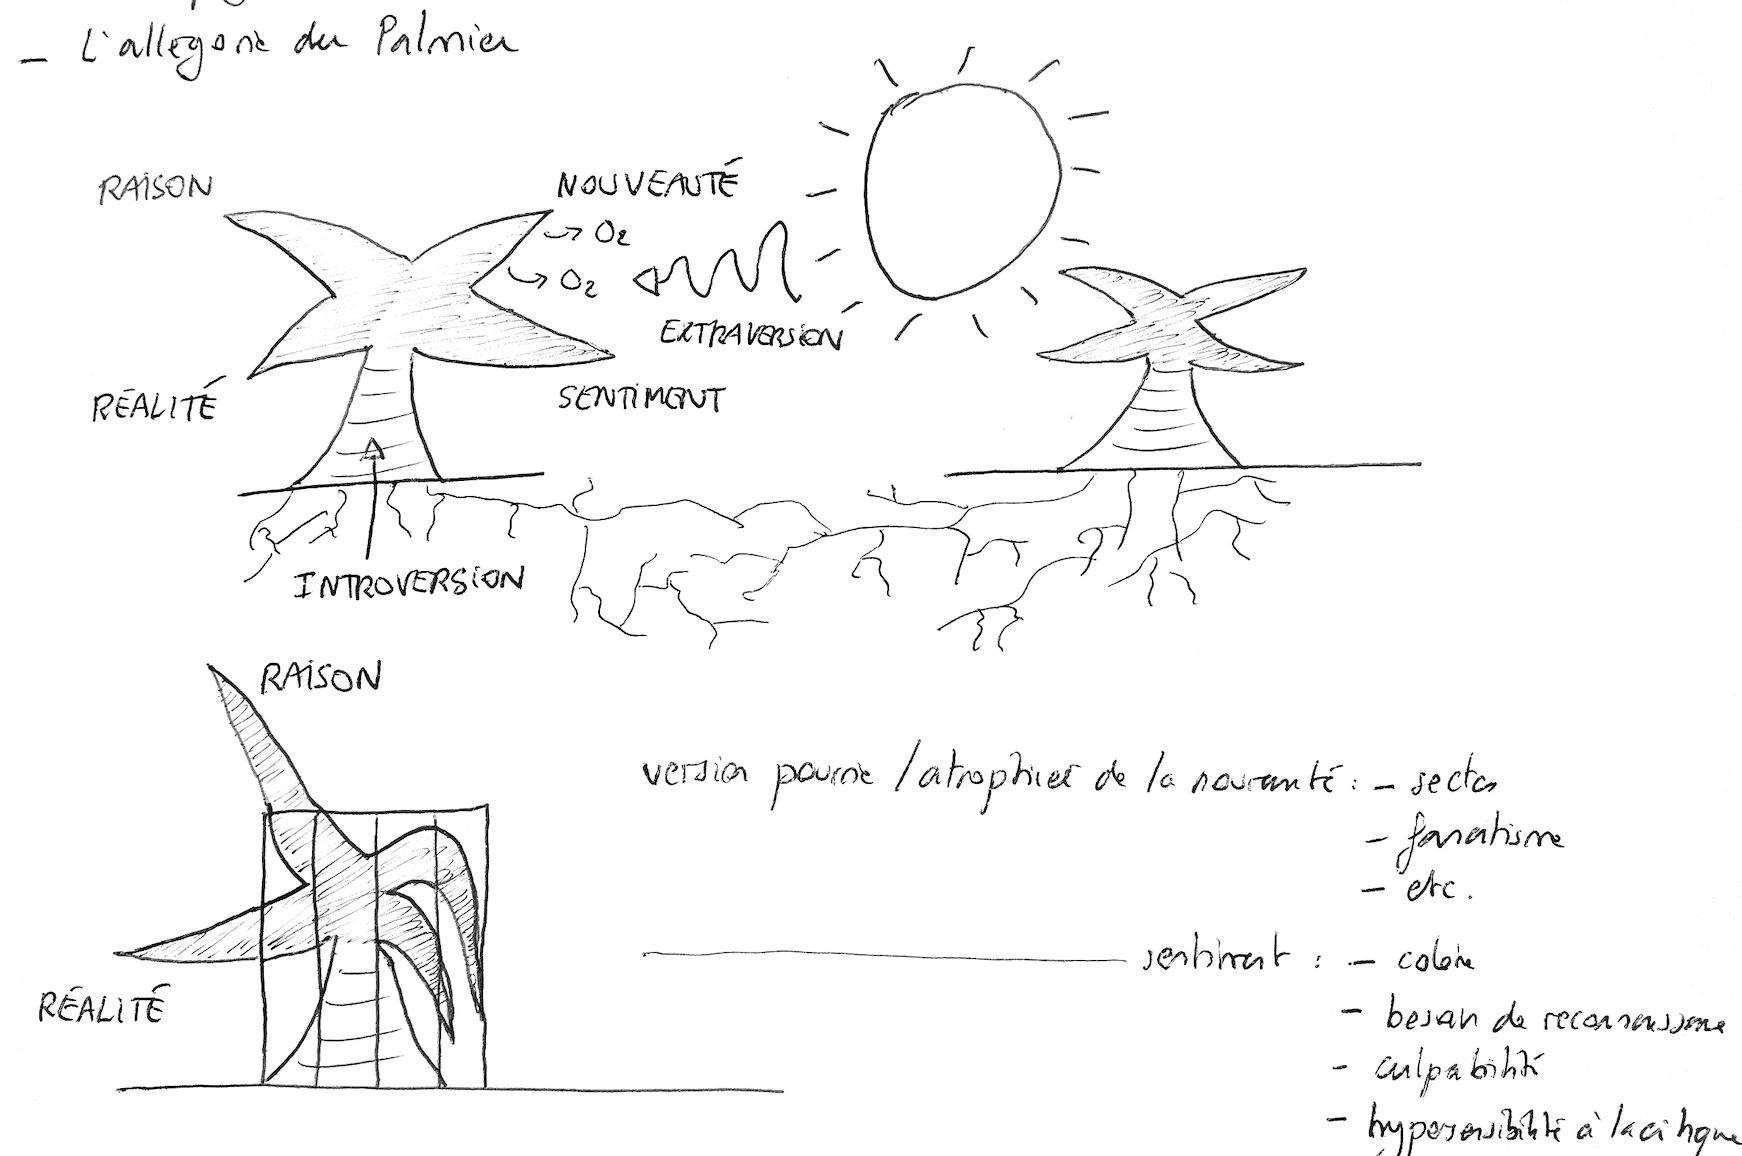 - L'allégorie du Palmier
RAISON
NOUVEAUTÉ
O2
O2
EXTRAVERSION
RÉALITÉ
SENTIMENT
INTROVERSION
RAISON
version pourrie / atrophiée de la nouveauté : - sectes
- fanatisme
- etc.
sentiment : - colère
RÉALITÉ
- besoin de reconnaissance
- culpabilité
- hypersensibilité à la critique